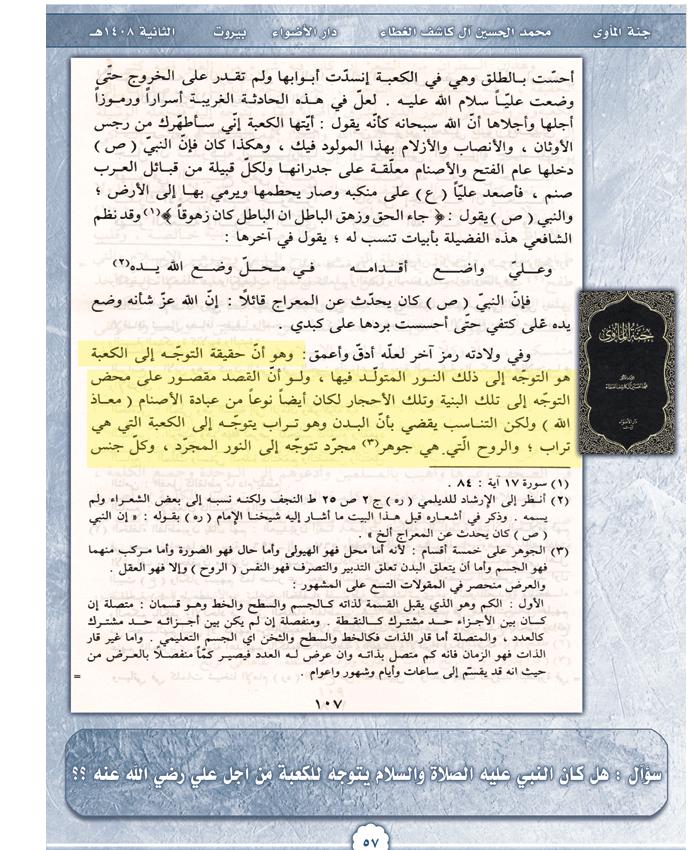 جنة المأوى    محمد الحسين آل كاشف الغطاء    دار الأضواء    بيروت    الثانية ١٤٠٨هـ
أحسّت بالطلق وهي في الكعبة إنسدّت أبوابها ولم تقدر على الخروج حتّى
وضعت عليّاً سلام الله عليه . لعلّ في هذه الحادثة الغريبة أسراراً ورموزاً
أجلها وأجلاها أنّ الله سبحانه كأنّه يقول : أيّتها الكعبة إنّي سأطهّرك من رجس
الأوثان ، والأنصاب والأزلام بهذا المولود فيك ، وهكذا كان فإنّ النبيّ ( ص )
دخلها عام الفتح والأصنام معلّقة على جدرانها ولكلّ قبيلة من قبائل العرب
صنم ، فأصعد عليّاً ( ع ) على منكبه وصار يحطمها ويرمي بها إلى الأرض ؛
والنبي ( ص ) يقول : ﴿ جاء الحق وزهق الباطل ان الباطل كان زهوقاً ﴾(١) وقد نظم
الشافعي هذه الفضيلة بأبيات تنسب له ؛ يقول في آخرها :
وعليّ واضع أقدامه في محلّ وضع الله يده(٢)
فإنّ النبيّ ( ص ) كان يحدّث عن المعراج قائلاً : إنّ الله عزّ شأنه وضع
يده عَلى كتفي حتّى أحسست بردها على كبدي .
وفي ولادته رمز آخر لعلّه أدقّ وأعمق : وهو أنّ حقيقة التوجّه إلى الكعبة
هو التوجّه إلى ذلك النور المتولّد فيها ، ولو أنّ القصد مقصور على محض
التوجّه إلى تلك البنية وتلك الأحجار لكان أيضاً نوعاً من عبادة الأصنام ( معاذ
الله ) ولكن التناسب يقضي بأنّ البدن وهو تراب يتوجّه إلى الكعبة التي هي
تراب ؛ والروح الّتي هي جوهر(٣) مجرّد تتوجّه إلى النور المجرّد ، وكلّ جنس
(١) سورة ١٧ آية : ٨٤ .
(٢) أنظر إلى الإرشاد للديلمي ( ره ) ج ٢ ص ٢٥ ط النجف ولكنه نسبه إلى بعض الشعراء ولم
يسمه . وذكر في أشعاره قبل هذا البيت ما أشار إليه شيخنا الإمام ( ره ) بقوله : « إن النبي
( ص ) كان يحدث عن المعراج ألخ » .
(٣) الجوهر على خمسة أقسام : لأنه أما محل فهو الهيولى وأما حال فهو الصورة وأما مركب منهما
فهو الجسم وأما أن يتعلق البدن تعلق التدبير والتصرف فهو النفس ( الروح ) وإلا فهو العقل .
والعرض منحصر في المقولات التسع على المشهور :
الأول : الكم وهو الذي يقبل القسمة لذاته كالجسم والسطح والخط وهو قسمان : متصلة إن
كان بين الأجزاء حد مشترك كالنقطة . ومنفصلة إن لم يكن بين أجزائه حد مشترك
كالعدد ، والمتصلة أما قار الذات فكالخط والسطح والثخن اي الجسم التعليمي . واما غير قار
الذات فهو الزمان فانه كم متصل بذاته وان عرض له العدد فيصير كمّاً منفصلًا بالعرض من
حيث انه قد يقسّم إلى ساعات وأيام وشهور واعوام .
=
١٠٧
جنة المأوى
سؤآل : هل كان النبي عليه الصلاة والسلام يتوجه للكعبة من اجل علي رضي الله عنه ؟؟
٥٧